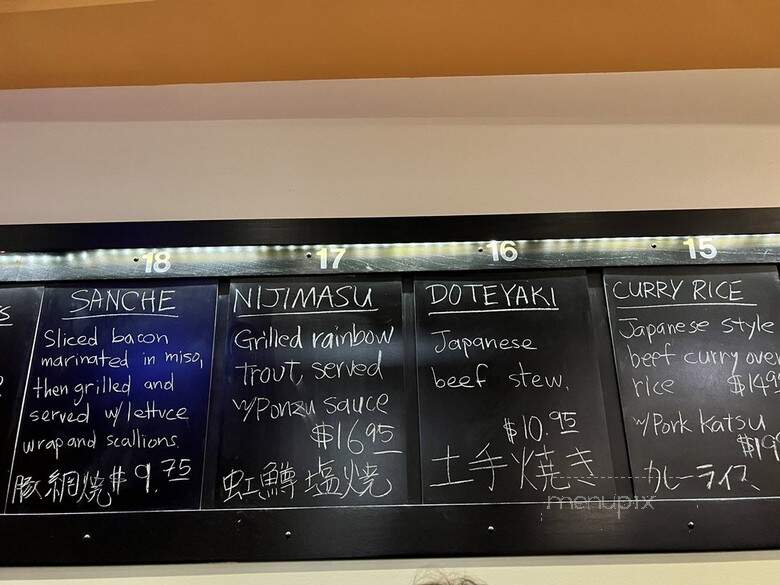 18
SANCHE
Sliced bacon
marinated in miso,
then grilled and
served w/ lettuce
wrap and scallions.
豚網焼 $9.75
17
NIJIMASU
Grilled rainbow
trout, served
w/Ponzu sauce
$16.95
虹鱒塩焼
16
DOTEYAKI
Japanese
beef stew.
$10.95
土手焼き
15
CURRY RICE
Japanese style
beef curry over
rice $14.95
w/Pork Katsu
カレーライス
menupix